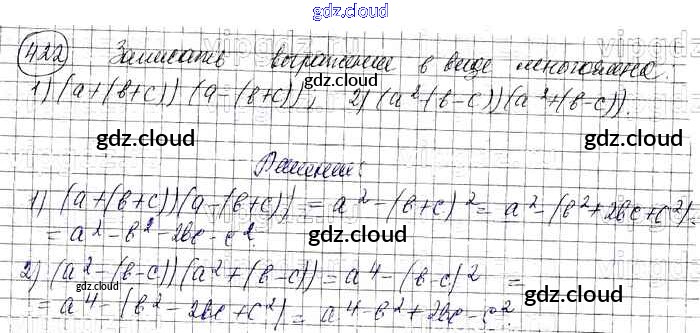 gdz.cloud
422 Записать выражения в виде многочлена.
1) (a+(b+c))(a-(b+c)); 2) (a²-(b-c))(a²+(b-c)).
gdz.cloud
gdz.cloud gdz.cloud
Решение:
1) (a+(b+c))(a-(b+c)) = a²-(b+c)² = a²-(b²+2bc+c²) =
= a²-b²-2bc-c².
gdz.cloud
2) (a²-(b-c))(a²+(b-c)) = a⁴-(b-c)² =
= a⁴-(b²-2bc+c²) = a⁴-b²+2bc-c²
gdz.cloud gdz.cloud